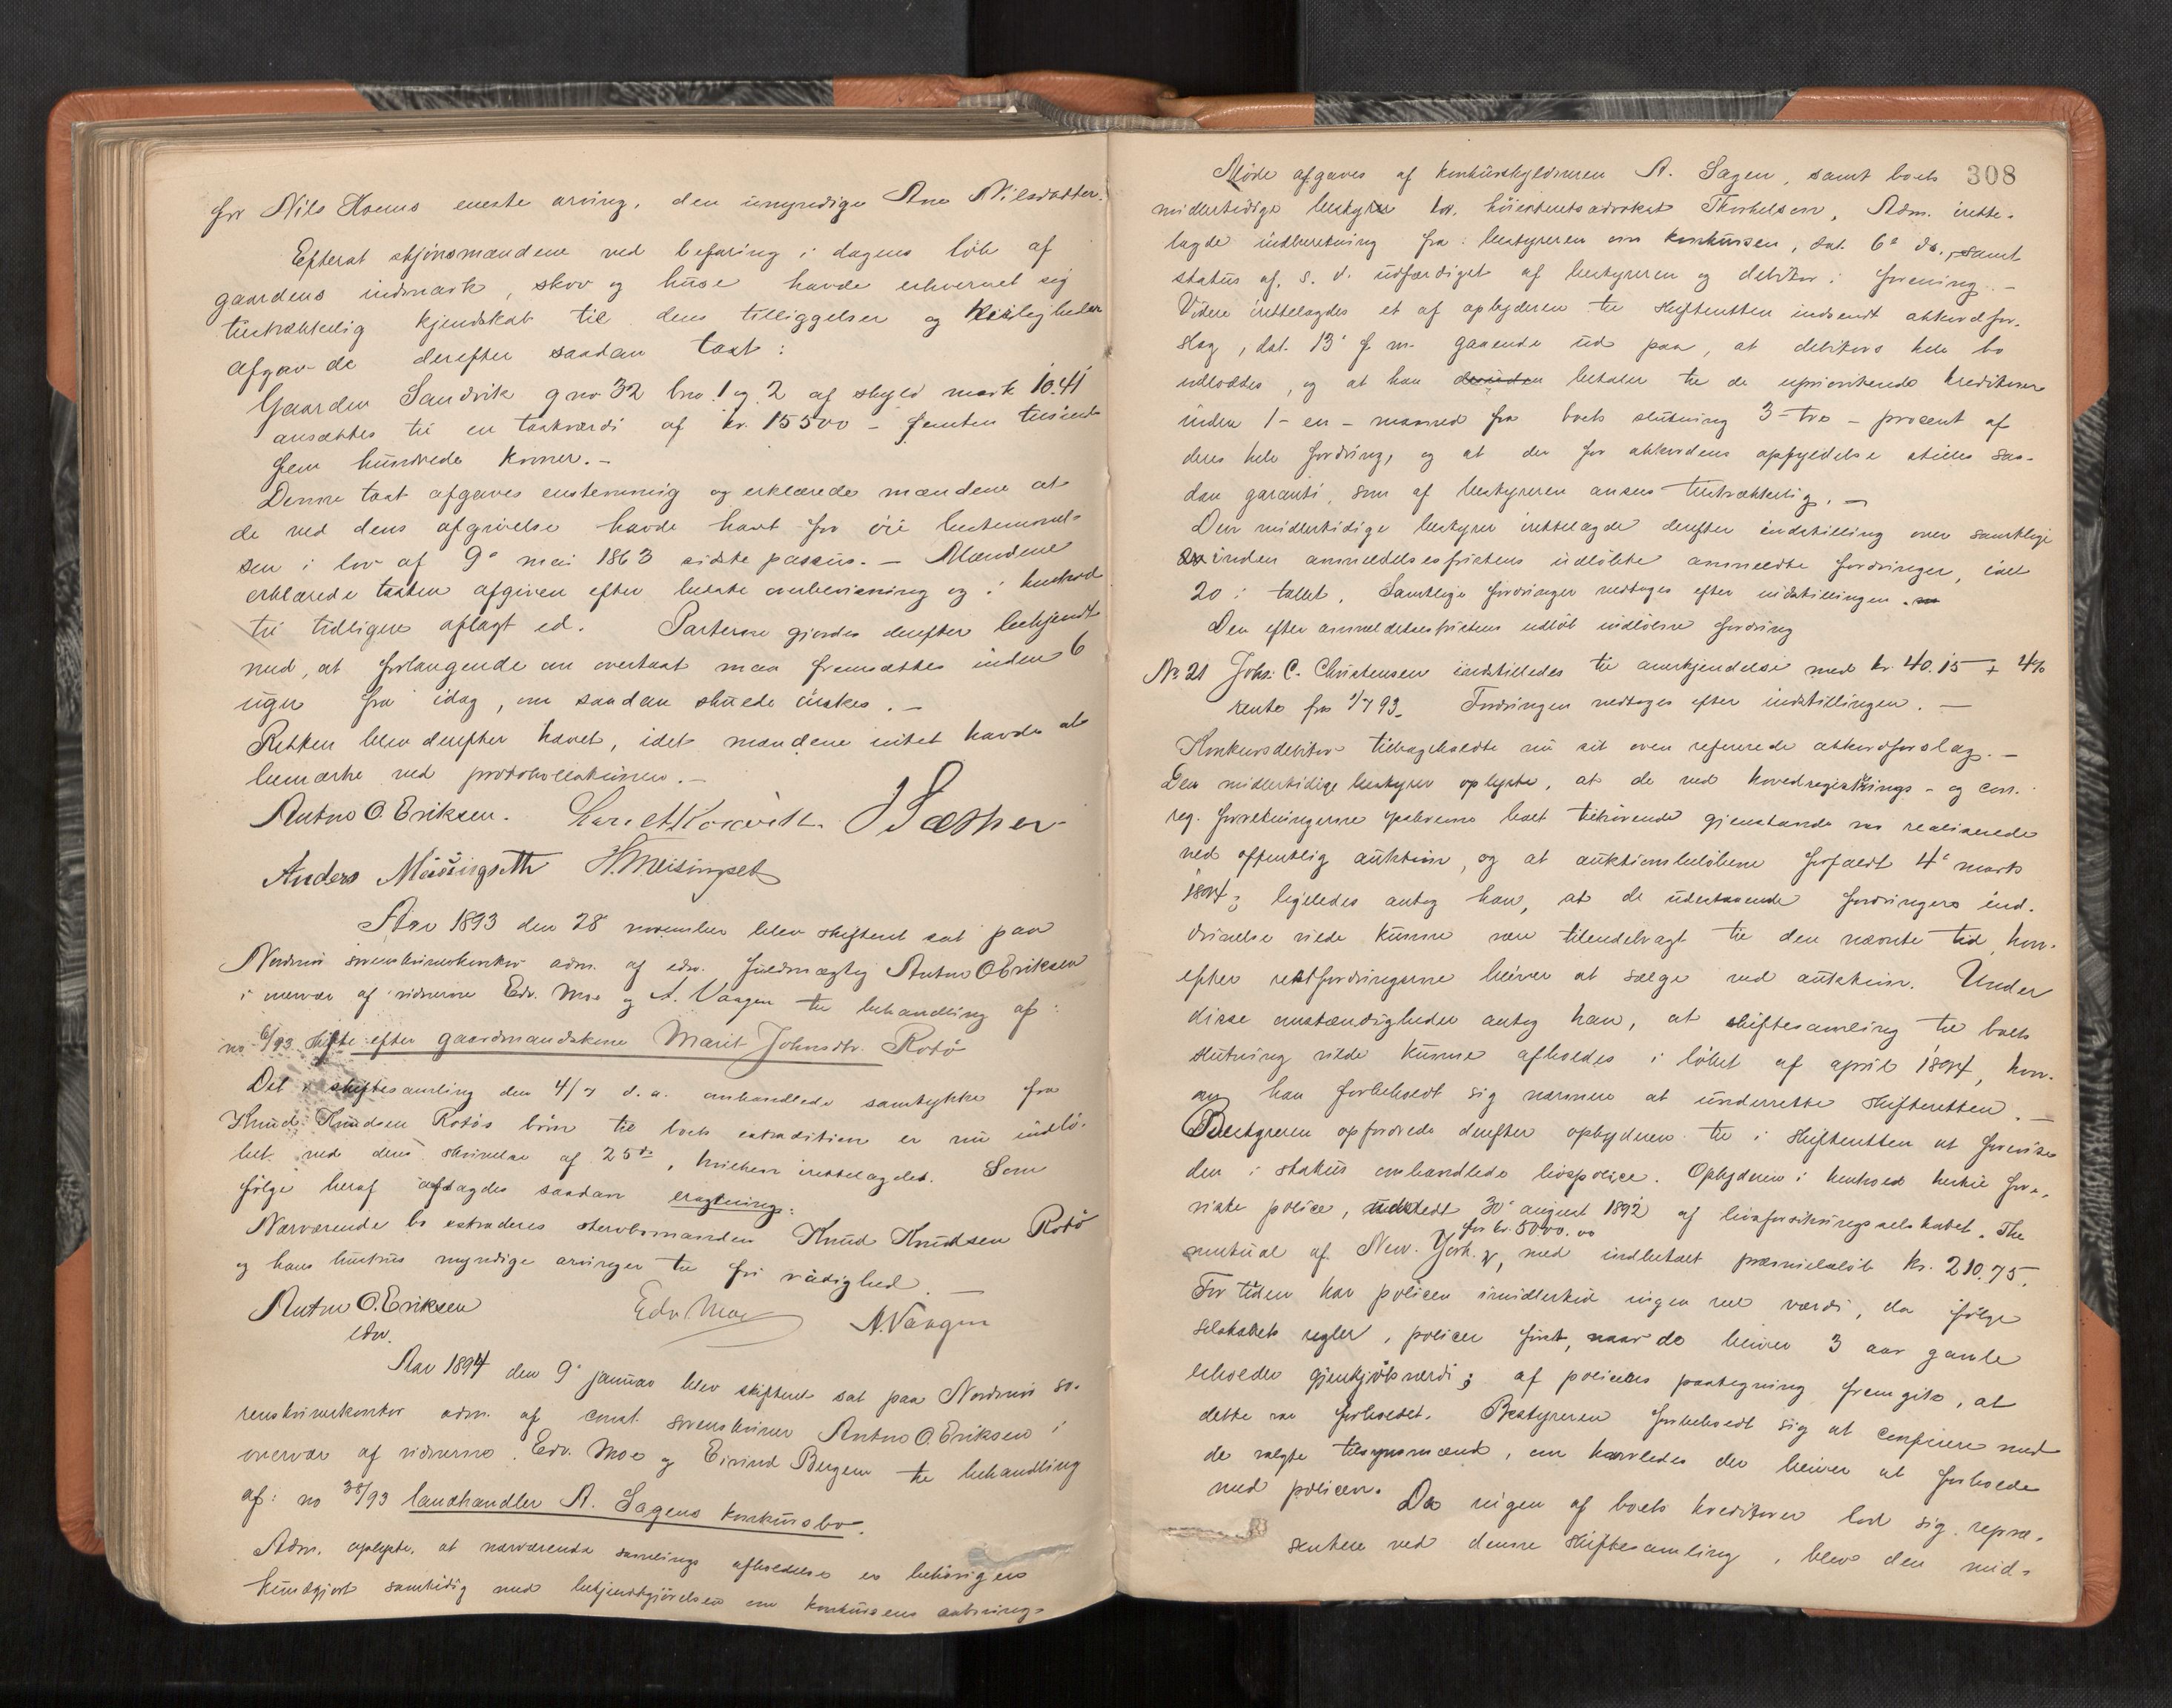 for Nils Hoems eneste arving, den umyndige Ane Nilsdatter.
Efterat skjønsmændene ved befaring i dagens løb af
gaardens indmark, skov og huse havde erhvervet sig
tilstrækkelig kjendskab til dens tilliggelser og herligheder
afgav de derefter saadan taxt:
Gaarden Sandvik gno 32 bno 1 og 2 af skyld mark 10.41
ansættes til en taxtværdi af kr. 15500 - femten tusinde
fem hundrede kroner. -
Denne taxt afgaves enstemmig og erklærede mændene at
de ved dens afgivelse havde havt for øie bestemmel-
sen i lov af 9de mai 1863 sidste passus. - Mændene
erklærede taxten afgiven efter bedste overbevisning og i henhold
til tidligere aflagt ed. Parterne gjordes derefter bekjendt
med, at forlangende om overtaxt maa fremsættes inden 6
uger fra idag, om saadan skulde ønskes. -
Retten blev derefter hævet, idet mændene intet havde at
bemærke ved protokollationen. -
Anton O. Eriksen. J Sæther
Anders H. Meisingset
Aar 1893 den 28 november blev skifteret sat paa
Nordmøre sorenskriverkontor adm. af edsv. fuldmægtig Anton O Eriksen
i overvær af vidnerne Edv. Moe og A. Vaagen til behandling af:
no 6/93 Skifte efter gaardmandskone Marit Johnsdtr. Rotø
Det i skiftesamling den 4/7 d. a. omhandlede samtykke fra
Knud Knudsen Rotøs børn til boets extradition er nu indlø-
bet med dens skrivelse af 25de, hvilken irettelagdes. Som
følge heraf aflagdes saadan eragtning:
Nærværende bo extraderes stervbomanden Knud Knudsen Rotø
og hans hustrus myndige arvinger til fri raadighed. -
Anton O. Eriksen Edv Moe A. Vaagen
edsv.
Aar 1894 den 9de januar blev skifteret sat paa Nordmøre so-
renskriverkontor adm. af const. sorenskriver Anton O. Eriksen i
overvær af vidnerne Edv. Moe og Eivind Bergem til behandling
af: no 38/93 landhandler A. Sagens konkursbo.
Adm. oplyste, at nærværende samlings afholdelse er behørigen
kundgjort samtidig med bekjendtgjørelsen om konkursens aabning.
308
Møde afgaves af konkursskyldneren A. Sagen, samt boets
midlertidige bestyrer hr. høiesteretsadvokat Thorkelsen, Adm. irette-
lagde indberetning fra bestyreren om konkursen, dat. 6de ds., samt
status af s. d. udfærdiget af bestyreren og debitor i forening. -
Videre irettelagdes et af opbyderen til skifteretten indsendt akkordfor-
slag, dat. 13de f. m. gaaende ud paa, at debitors hele bo
udloddes, og at han betaler til de uprioriterede kreditorer
inden 1 - en - maaned fra boets slutning 3 - tre - procent af
deres hele fordring, og at der for akkordens opfyldelse stilles saa-
dan garanti, som af bestyreren ansees tilstrækkelig. -
Den midlertidige bestyrer irettelagde derefter indstilling over samtlige
inden anmeldelsesfristens udløb anmeldte fordringer, ialt
20 i tallet. Samtlige fordringer vedtoges efter indstillingen.
Den efter anmeldelsesfristens udløb indløbne fordring
No 21 Johs. C. Christensen indstilledes til anerkjendelse med kr. 40.15 + 4%
rente fra 1/7 93. Fordringen vedtoges efter indstillingen. -
Konkursdebitor tilbagekaldte nu sit oven refererede akkordforslag. -
Den midlertidige bestyrer oplyste, at de ved hovedregistrerings- og con.
reg. forretningerne opskrevne boet tilhørende gjenstande var realiserede
ved offentlig auktion, og at auktionsbeløbene forfaldt 4de marts
1894; ligeledes antog han, at de udestaaende fordringers ind-
drivelse vilde kunne være tilendebragt til den nævnte tid, hvor-
efter restfordringerne bliver at sælge ved auktion. Under
disse omstændigheder antog han, at skiftesamling til boets
slutning vilde kunne afholdes i løbet af april 1894, hvor-
om han forbeholdt sig nærmere at underrette skifteretten. -
Bestyreren opfordrede derefter opbyderen til i skifteretten at forevise
den i status omhandlede livspolice. Opbyderen i henhold hertil fore-
viste police, udstedt 30de august 1892 af livsforsikringsselskabet „The
mutual af New-York“, for kr. 5000.00 med indbetalt præmiebeløb kr. 210.75.
For tiden har policen imidlertid ingen reel værdi, da ifølge
selskabets regler, policer først, naar de bliver 3 aar gamle
beholder gjenkjøbsværdi; af policens paategning fremgik, at
dette var forholdet. Bestyreren forbeholdt sig at conferere med
de valgte tilsynsmænd, om hvorledes der bliver at forholde
med policen. Da ingen af boets kreditorer lod sig repræ-
sentere ved denne skiftesamling, blev den mid-